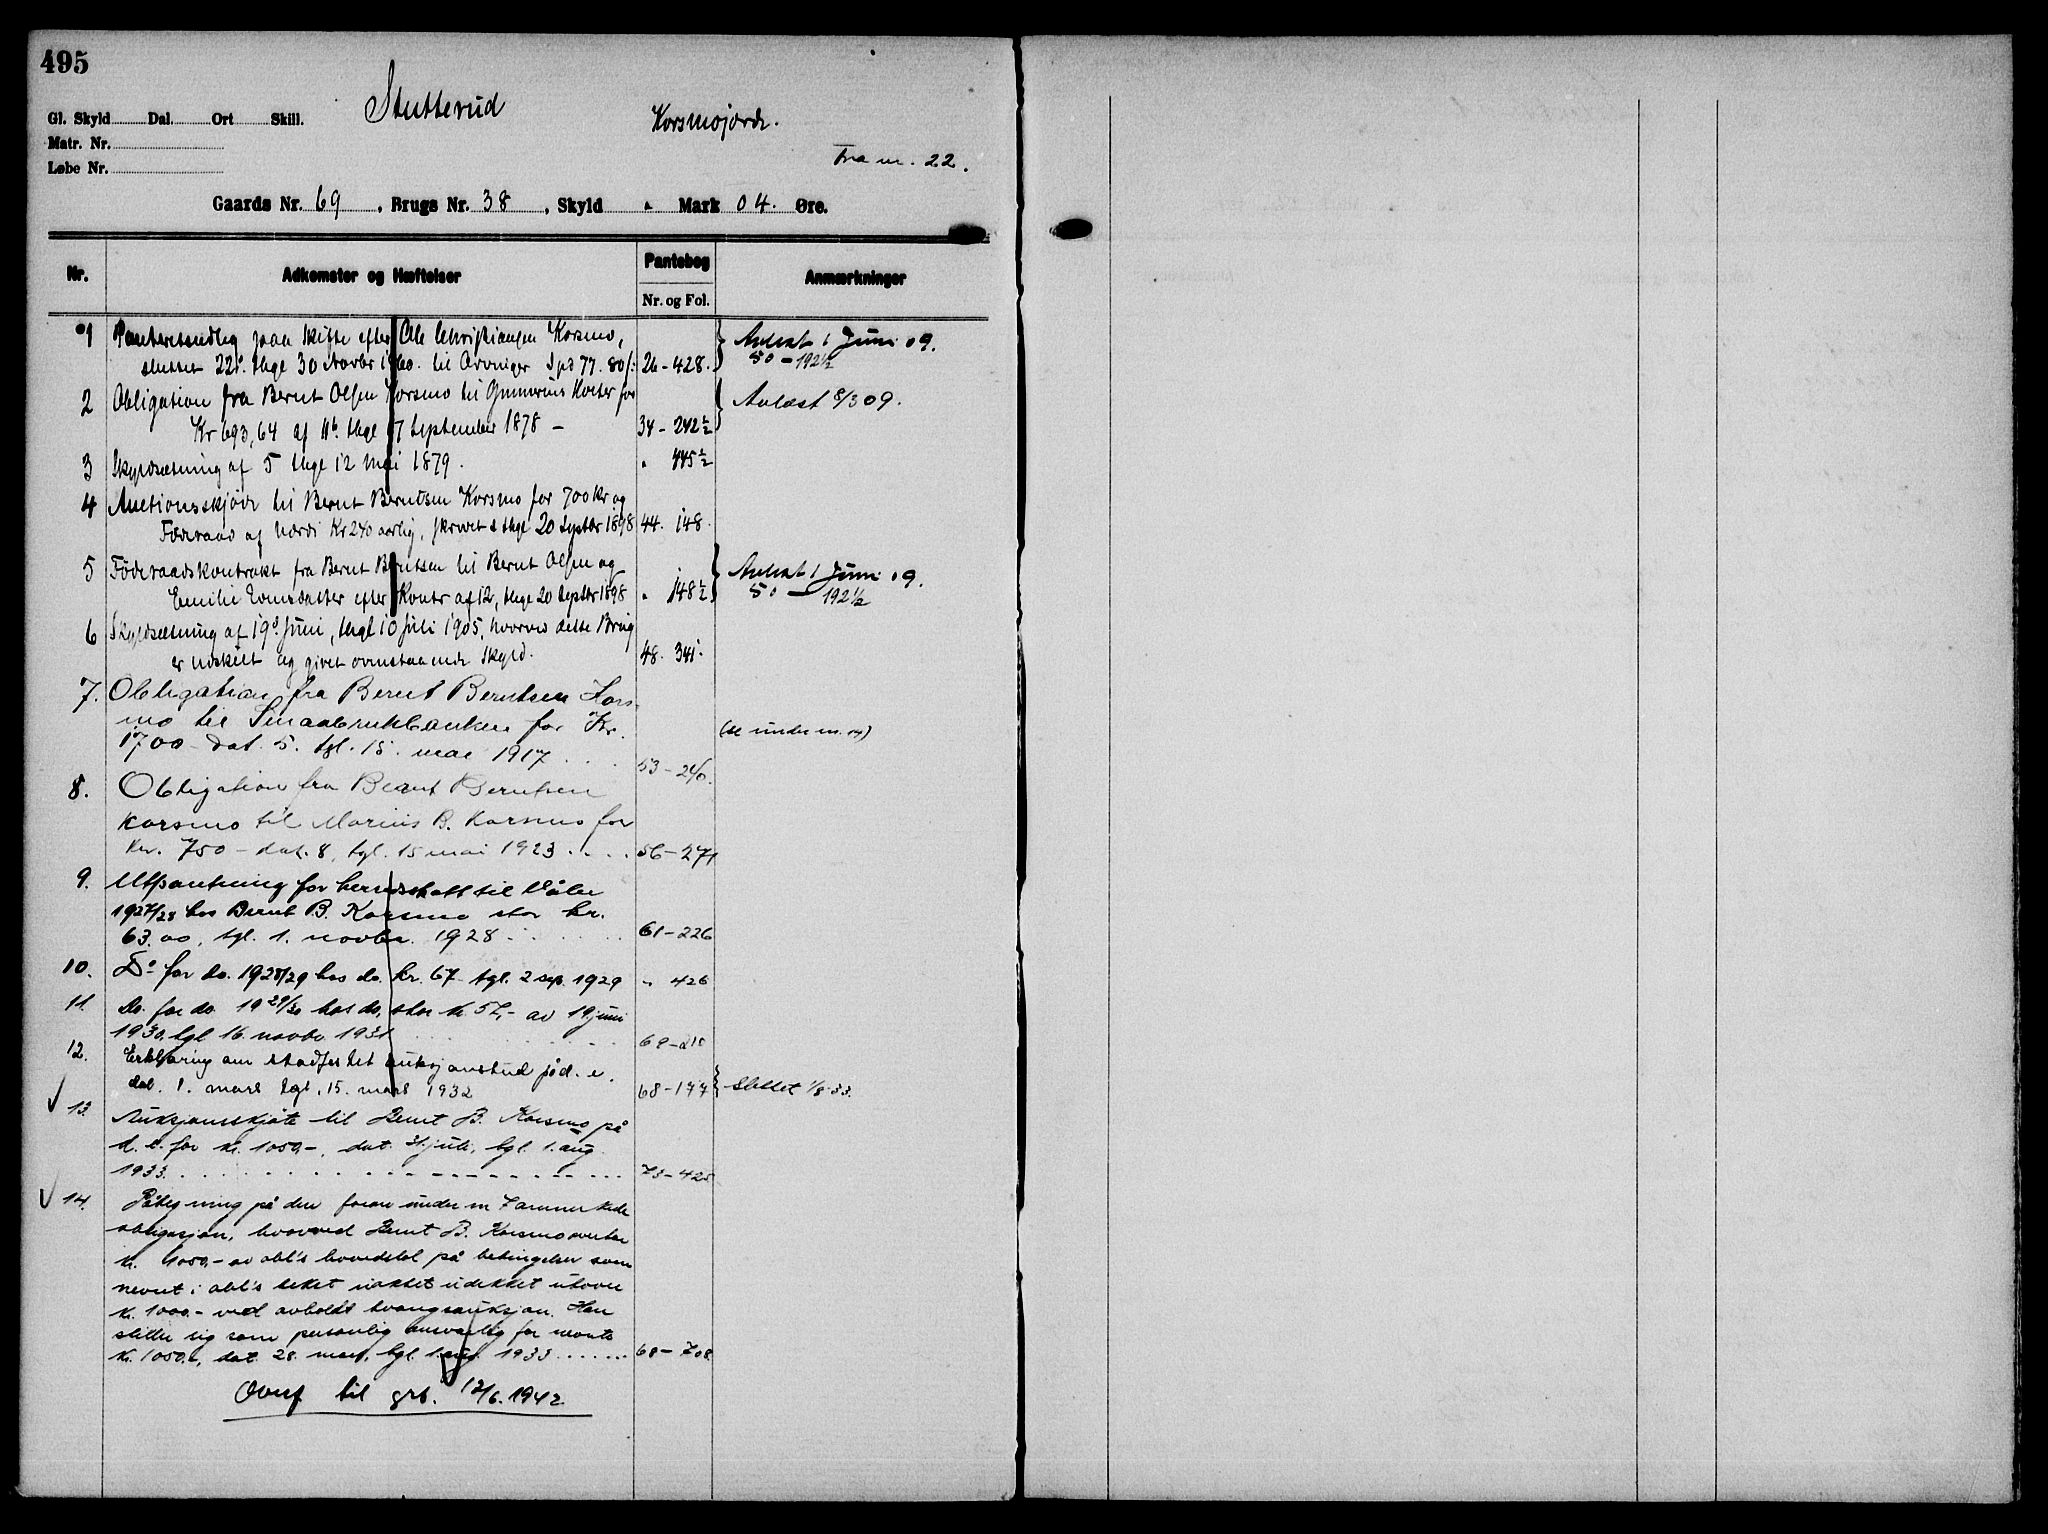 495
Gl. Skyld Dal. Ort Skill.
Stutterud
Korsmojorde.
Matr. Nr.
Løbe Nr.
Fra nr. 22.
Gaards Nr. 69, Brugs Nr. 38, Skyld " Mark 04. Øre.
Nr. Adkomster og Hæftelser Pantebog Nr. og Fol. Anmærkninger
1 Panteretsudlæg paa Skifte efter Ole Christiansen Korsmo,
sluttet 22. thgl 30 Novbr 1860. til Arvinger Spd 77. 80 26-428. Avlæst 1 Juni 09. 50-192½
2 Obligation fra Bernt Olsen Korsmo til Gunnerius Holter for
Kr 693,64 af 11. thgl 17 September 1878 - 34-242½ Avlæst 8/3 09.
3 Skyldsætning af 5 thgl 12 Mai 1879. " 445½
4 Auctionsskjøde til Bernt Berntsen Korsmo for 700 kr og
Føderaad af Værdi Kr 240 aarlig, skrevet thgl 20 Septbr 1898 44. 148.
5 Föderaadskontrakt fra Bernt Berntsen til Bernt Olsen og
Emilie Evensdatter efter Kontr af 12, thgl 20 Septbr 1898 " 148½ Avlæst 1 Juni 09. 50-192½
6 Skyldsætning af 19. Juni, thgl 10 Juli 1905, hvorved dette Brug
er udskilt og givet ovenstaaende Skyld. 48. 341.
7. Obligation fra Bernt Berntsen Kors-
mo til Smaabrukbanken for Kr.
1700 - dat. 5. tgl. 15. mai 1917 . . . 53-240. (se under nr. 14)
8. Obligation fra Bernt Berntsen
Korsmo til Marius B. Korsmo for
Kr. 750 - dat. 8, tgl. 15 mai 1923 . . . . 56-271
9. Utpantning for herredsskatt til Våler
1927/28 hos Bernt B. Korsmo stor kr.
63.00, tgl. 1. novbr. 1928 . . . 61-226
10. Do for do. 1928/29 hos do. kr. 67 - tgl. 2 sep. 1929 " 426
11. Do. for do. 1929/30 hos do, stor kr. 57,- av 19 juni
1930, tgl 16. novbr 1931
12. Erklæring om stadfestet auksjonsbud på d. e.
dat. 1. mars tgl. 15. mars 1932 68-177 Slettet 1/8-33.
13. Auksjonsskjøte til Bernt B. Korsmo på
d. e. for kr. 1050,-, dat. 31. juli, tgl. 1. aug.
1933. . . . 73-425
14. Påtegning på den foran under nr 7 anmerkede
obligasjon, hvorved Bernt B. Korsmo overtar
kr. 1050,- av obl's hovedstol på betingelser som
nevnt i obl's tekst uaktet udekket utover
kr. 1000.- ved avholdt tvangsauksjon. Han
stiller sig som personlig ansvarlig for
kr. 1050.-, dat. 28. mars, tgl. 1. aug. 1933 . . . 68-708
Overf til grb. 12/6.1942